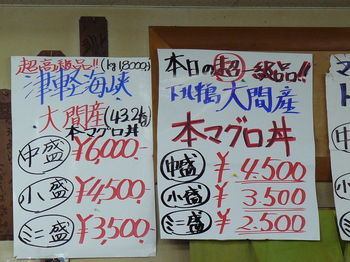 超高級品!! (kg18000円)
津軽海峡
大間産 (43.2k)
本マグロ丼
中盛 ¥6,000-
小盛 ¥4,500-
ミニ盛 ¥3,500-
本日の超一級品!!
大間産
本マグロ丼
中盛 ¥4.500
小盛 ¥3.500
ミニ盛 ¥2.500